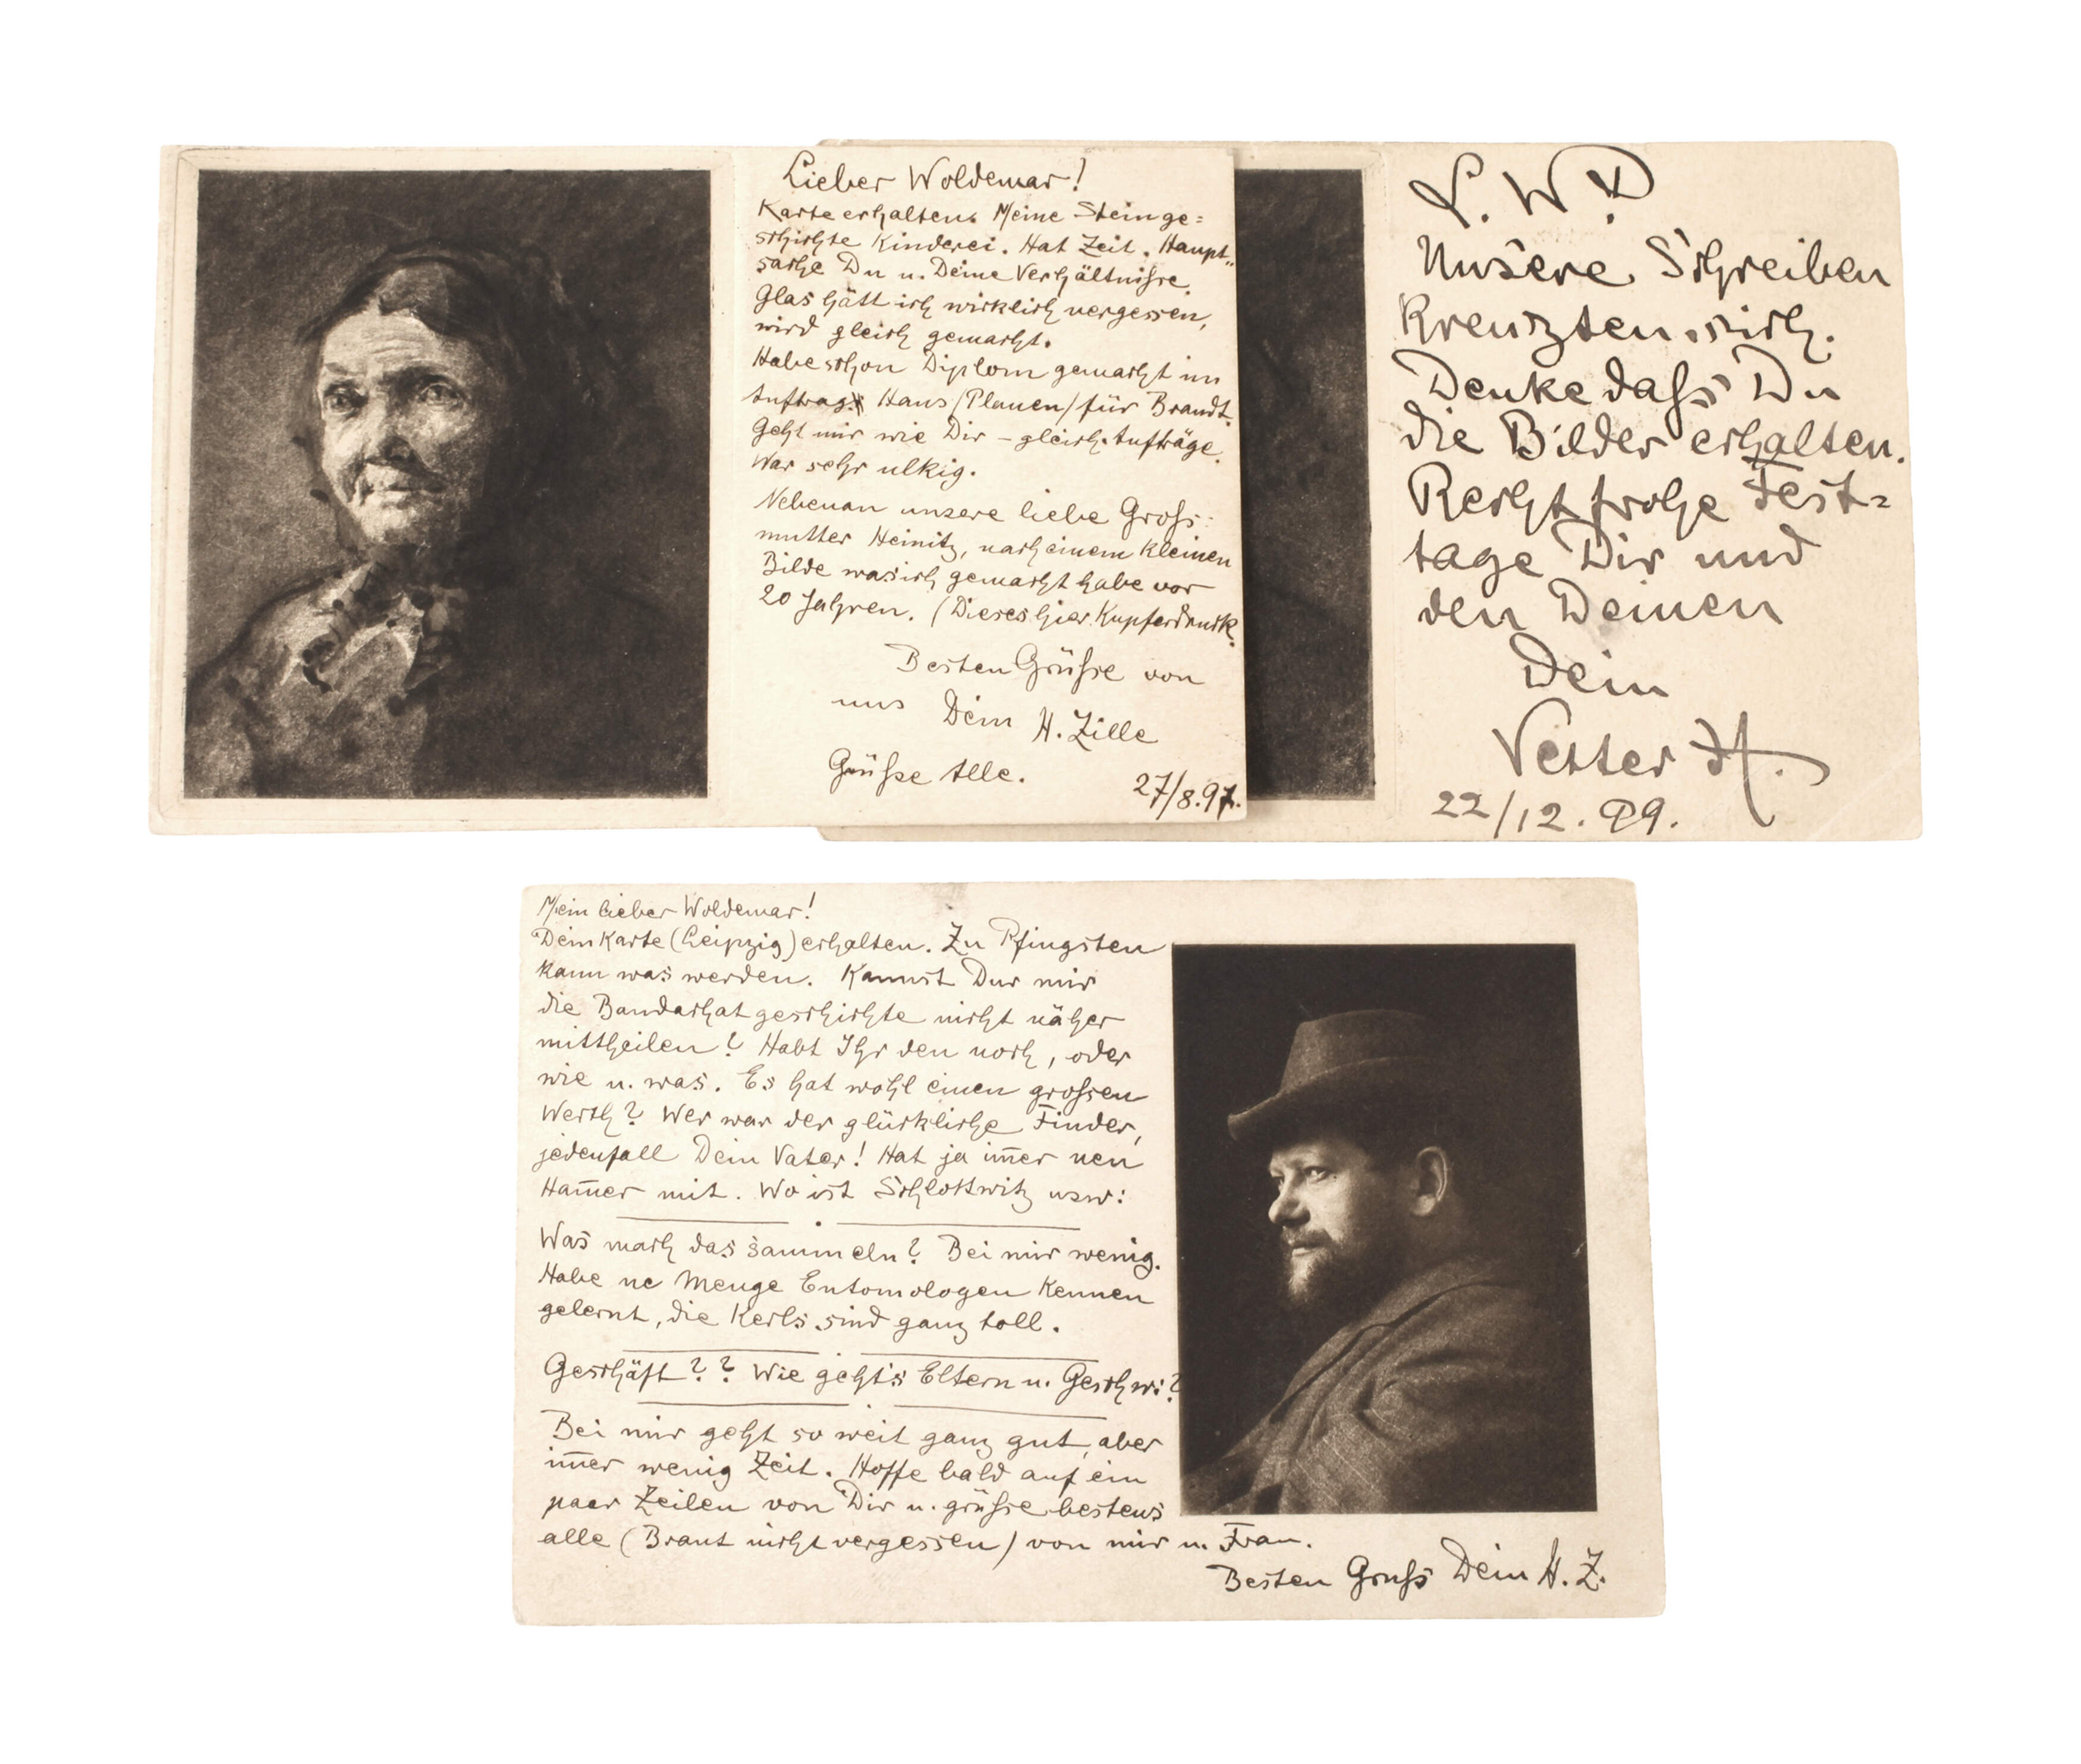 Lieber Woldemar!
Karte erhalten. Meine Steinge=
schichte Kinderei. Hat Zeit. Haupt„
sache Du u. Deine Verhältnisse.
Glas hätt ich wirklich vergessen,
wird gleich gemacht.
Habe schon Diplom gemacht im
Auftrag Haus (Plauen) für Brandt.
Geht mir wie Dir – gleich Aufträge.
War sehr ulkig.
Nebenan unsere liebe Gross-
mutter Heinitz, nach einem kleinen
Bilde was ich gemacht habe vor
20 Jahren. (Dieses hier Kupferdruck.
Besten Grüsse von
uns Dein H. Zille
Grüsse Alle.
27/8.97.
L. W.
Unsere Schreiben
kreuzten sich.
Denke dass Du
die Bilder erhalten.
Recht frohe Fest=
tage Dir und
den Deinen
Dein
Vetter H.
22/12.99.
Mein lieber Woldemar!
Dein Karte (Leipzig) erhalten. Zu Pfingsten
kann was werden. Kannst Dur mir
die Bandachatgeschichte nicht näher
mittheilen? Habt Ihr den noch, oder
wie u. was. Es hat wohl einen grossen
Werth? Wer war der glückliche Finder,
jedenfall Dein Vater! Hat ja im̅er nen
Ham̅er mit. Wo ist Schlottwitz usw:
Was mach das sammeln? Bei mir wenig.
Habe ne Menge Entomologen kennen
gelernt, die Kerls sind ganz toll.
Geschäft?? Wie geht's Eltern u. Geschwi?
Bei mir geht so weit ganz gut, aber
im̅er wenig Zeit. Hoffe bald auf ein
paar Zeilen von Dir u. grüsse bestens
alle (Braut nicht vergessen) von mir u. Frau.
Besten Gruss Dein H. Z.